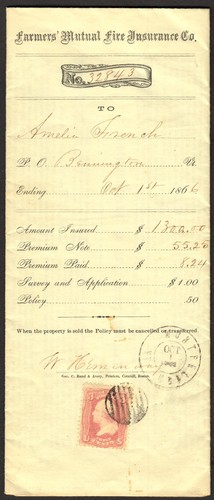 Farmers' Mutual Fire Insurance Co.
No. 32843
TO
Amelia French
P. O. Bennington Vt
Ending Oct 1st 1866
Amount Insured $ 1300.00
Premium Note $ 55.20
Premium Paid $ 8.24
Survey and Application $ 1.00
Policy 50
When the property is sold the Policy must be cancelled or transferred
Geo. C. Rand & Avery, Printers, Cornhill, Boston.